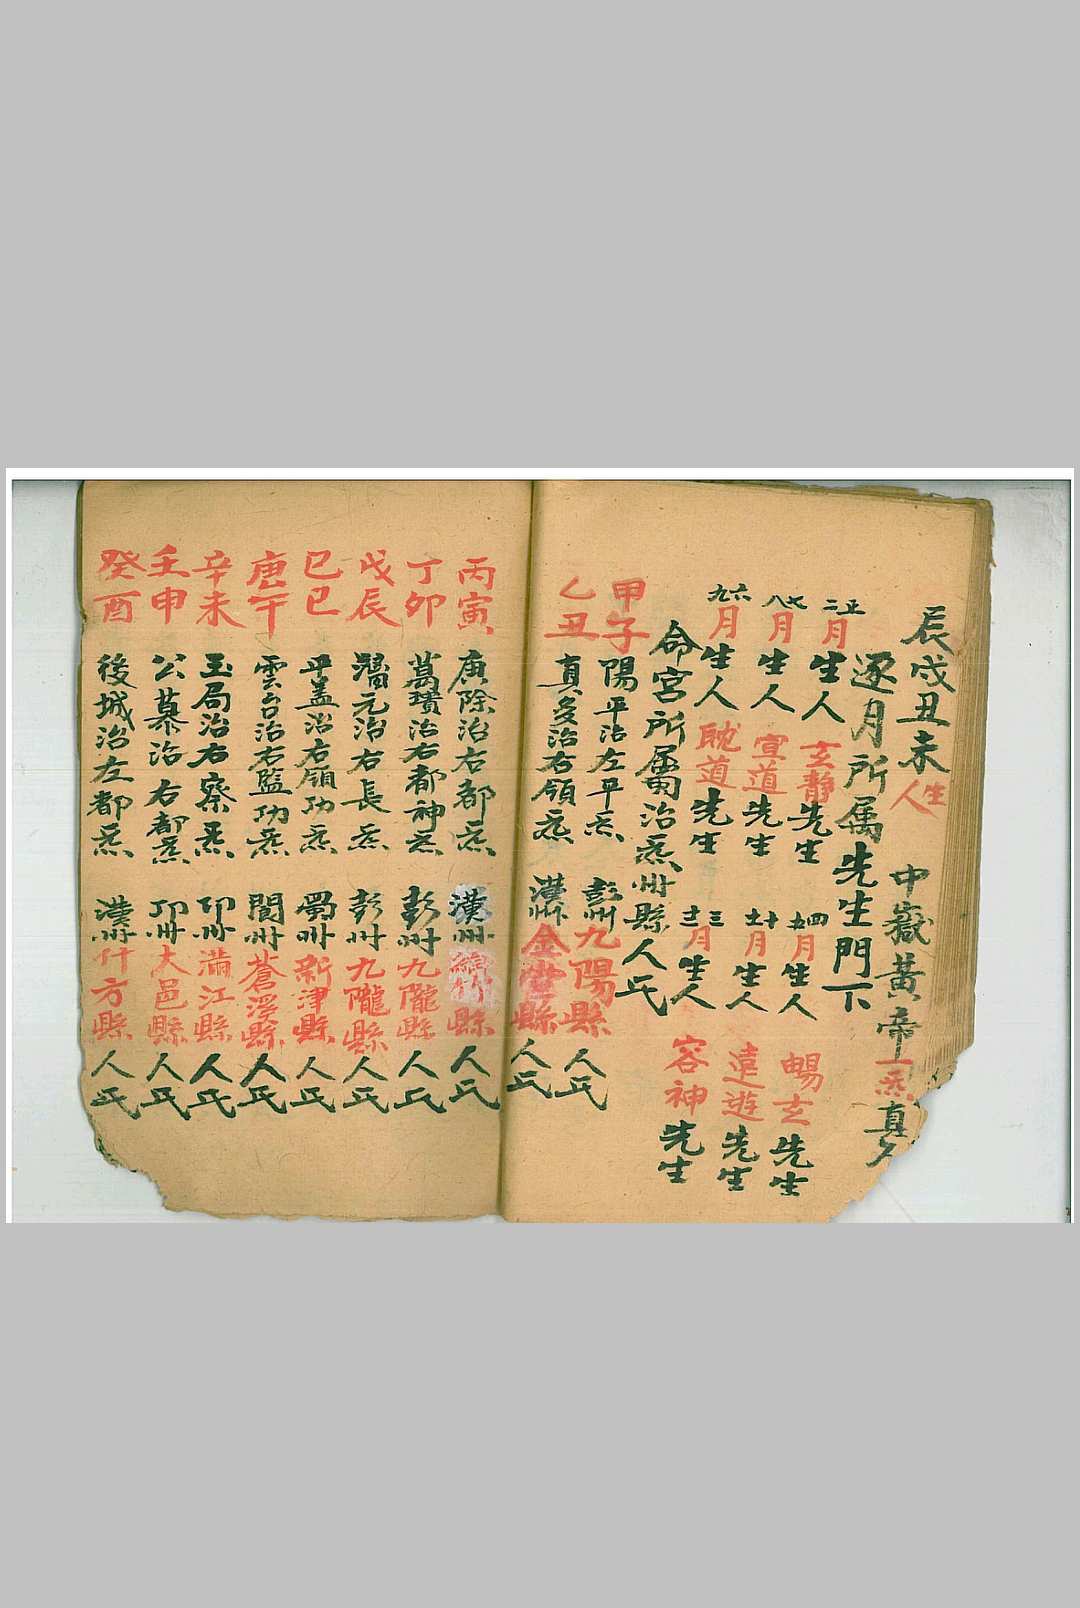 辰戌丑未生人 中嶽黃帝一炁真
逐月所属先生門下
正二月生人 玄靜先生 四五月生人 暢玄先生
七八月生人 宣道先生 十十一月生人 遠遊先生
六九月生人 眈道先生 三十二月生人 容神先生
命宮所屬治炁州縣人氏
甲子 陽平治左平炁 彭州九陽縣人氏
乙丑 真多治右領炁 漢州金堂縣人氏
丙寅 唐除治右都炁 漢州綿竹縣人氏
丁卯 萬璝治右都神炁 彭州九隴縣人氏
戊辰 濡元治右長炁 彭州九隴縣人氏
己巳 平盖治右領功炁 蜀州新津縣人氏
庚午 雲台治右監功炁 閬州蒼溪縣人氏
辛未 玉局治右察炁 邛州滿江縣人氏
壬申 公慕治右都炁 邛州大邑縣人氏
癸酉 後城治左都炁 漢州什方縣人氏